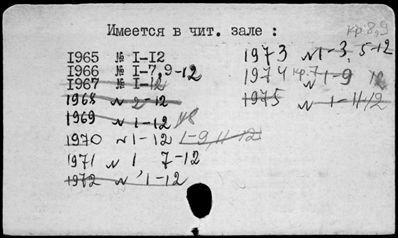 Имеется в чит. зале :
кр. 8,9
1965 № I-I2
1966 № I-7, 9-12
1967 № I-12
1968 N 2-12
1969 N 1-12 N8
1970 N 1-12 1-9, 11-12
1971 N 1 7-12
1972 N 1-12
1973 N 1-3, 5-12
1974 кр.7 N 1-9 12
1975 N 1-11-12